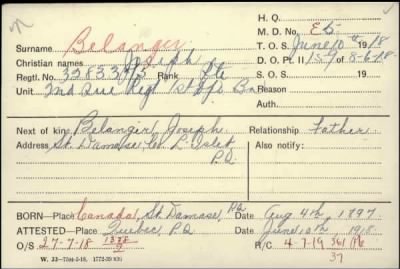 H. Q.
M. D. No. E5
Surname Belanger
T. O. S. June 10th 1918
Christian names Joseph
D. O. Pt. II 159 of 8-6-18
Regtl. No. Rank Pte
S. O. S. 19
Unit 2nd Que Regt 1st Depo Bn
Reason
Auth.
Next of kin Belanger Joseph
Relationship Father
Address St. Damase, Co. L'Islet
Also notify:
P.Q.
BORN—Place Canada, St. Damase, P.Q. Date Aug 4th, 1897
ATTESTED—Place Quebec, P.Q. Date June 10th, 1918
O/S 27-7-18 R/C 4-7-19
37